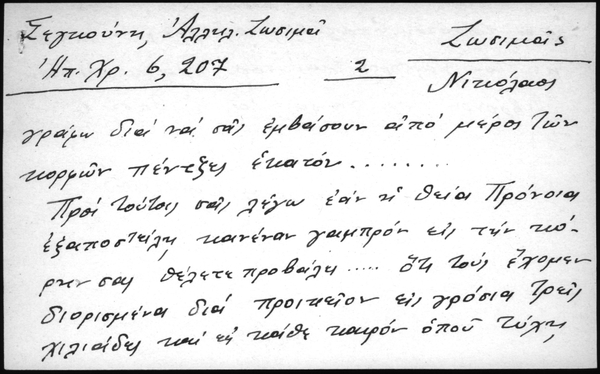 Σεγκούνη, Ἀλληλ. Ζωσιμαῖ
Ζωσιμαῖς
Ἠπ. Χρ. 6, 207
2
Νικόλαος
γράφω διά νά σᾶς ἐμβάσουν ἀπό μέρος τῶν
κορμῶν πέντεξες ἑκατόν........
Πρός τούτοις σᾶς λέγω ἐάν ἡ θεία Πρόνοια
ἐξαποστείλη κανέναν γαμπρόν εἰς τήν κό-
ρην σας θέλετε προβάλη..... ὅτι τούς ἔχομεν
διορισμένα διά προικεῖον εἰς γρόσια τρεῖς
χιλιάδες καί εἰς κάθε καιρόν ὁποῦ τύχη,